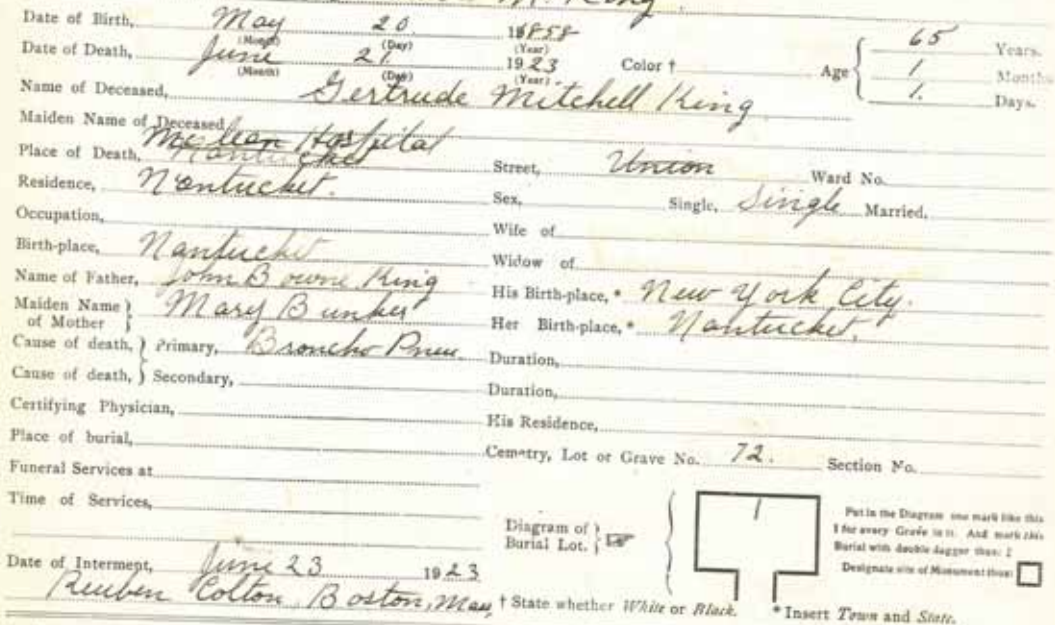 M. King.
Date of Birth, May 20 1858
(Month) (Day) (Year)
Date of Death, June 21 1923 Color † Age { 65 Years. 1 Months 1. Days.
(Month) (Day) (Year)
Name of Deceased, Gertrude Mitchell King
Maiden Name of Deceased
McLean Hospital
Place of Death, Nantucket Street, Union Ward No.
Residence, Nantucket. Sex, Single, Single Married,
Occupation, Wife of
Birth-place, Nantucket Widow of
Name of Father, John Bowne King His Birth-place, * New York City.
Maiden Name of Mother } Mary Bunker Her Birth-place, * Nantucket.
Cause of death, } Primary, Broncho Pneu. Duration,
Cause of death, } Secondary, Duration,
Certifying Physician, His Residence,
Place of burial, Cemetry, Lot or Grave No. 72. Section No.
Funeral Services at
Time of Services,
Diagram of Burial Lot. } ☞ 1
Put in the Diagram one mark like this
1 for every Grave in it. And mark this
Burial with double dagger thus: ‡
Designate site of Monument thus: □
Date of Interment, June 23 1923
Reuben Colton, Boston, Mass † State whether White or Black. * Insert Town and State.